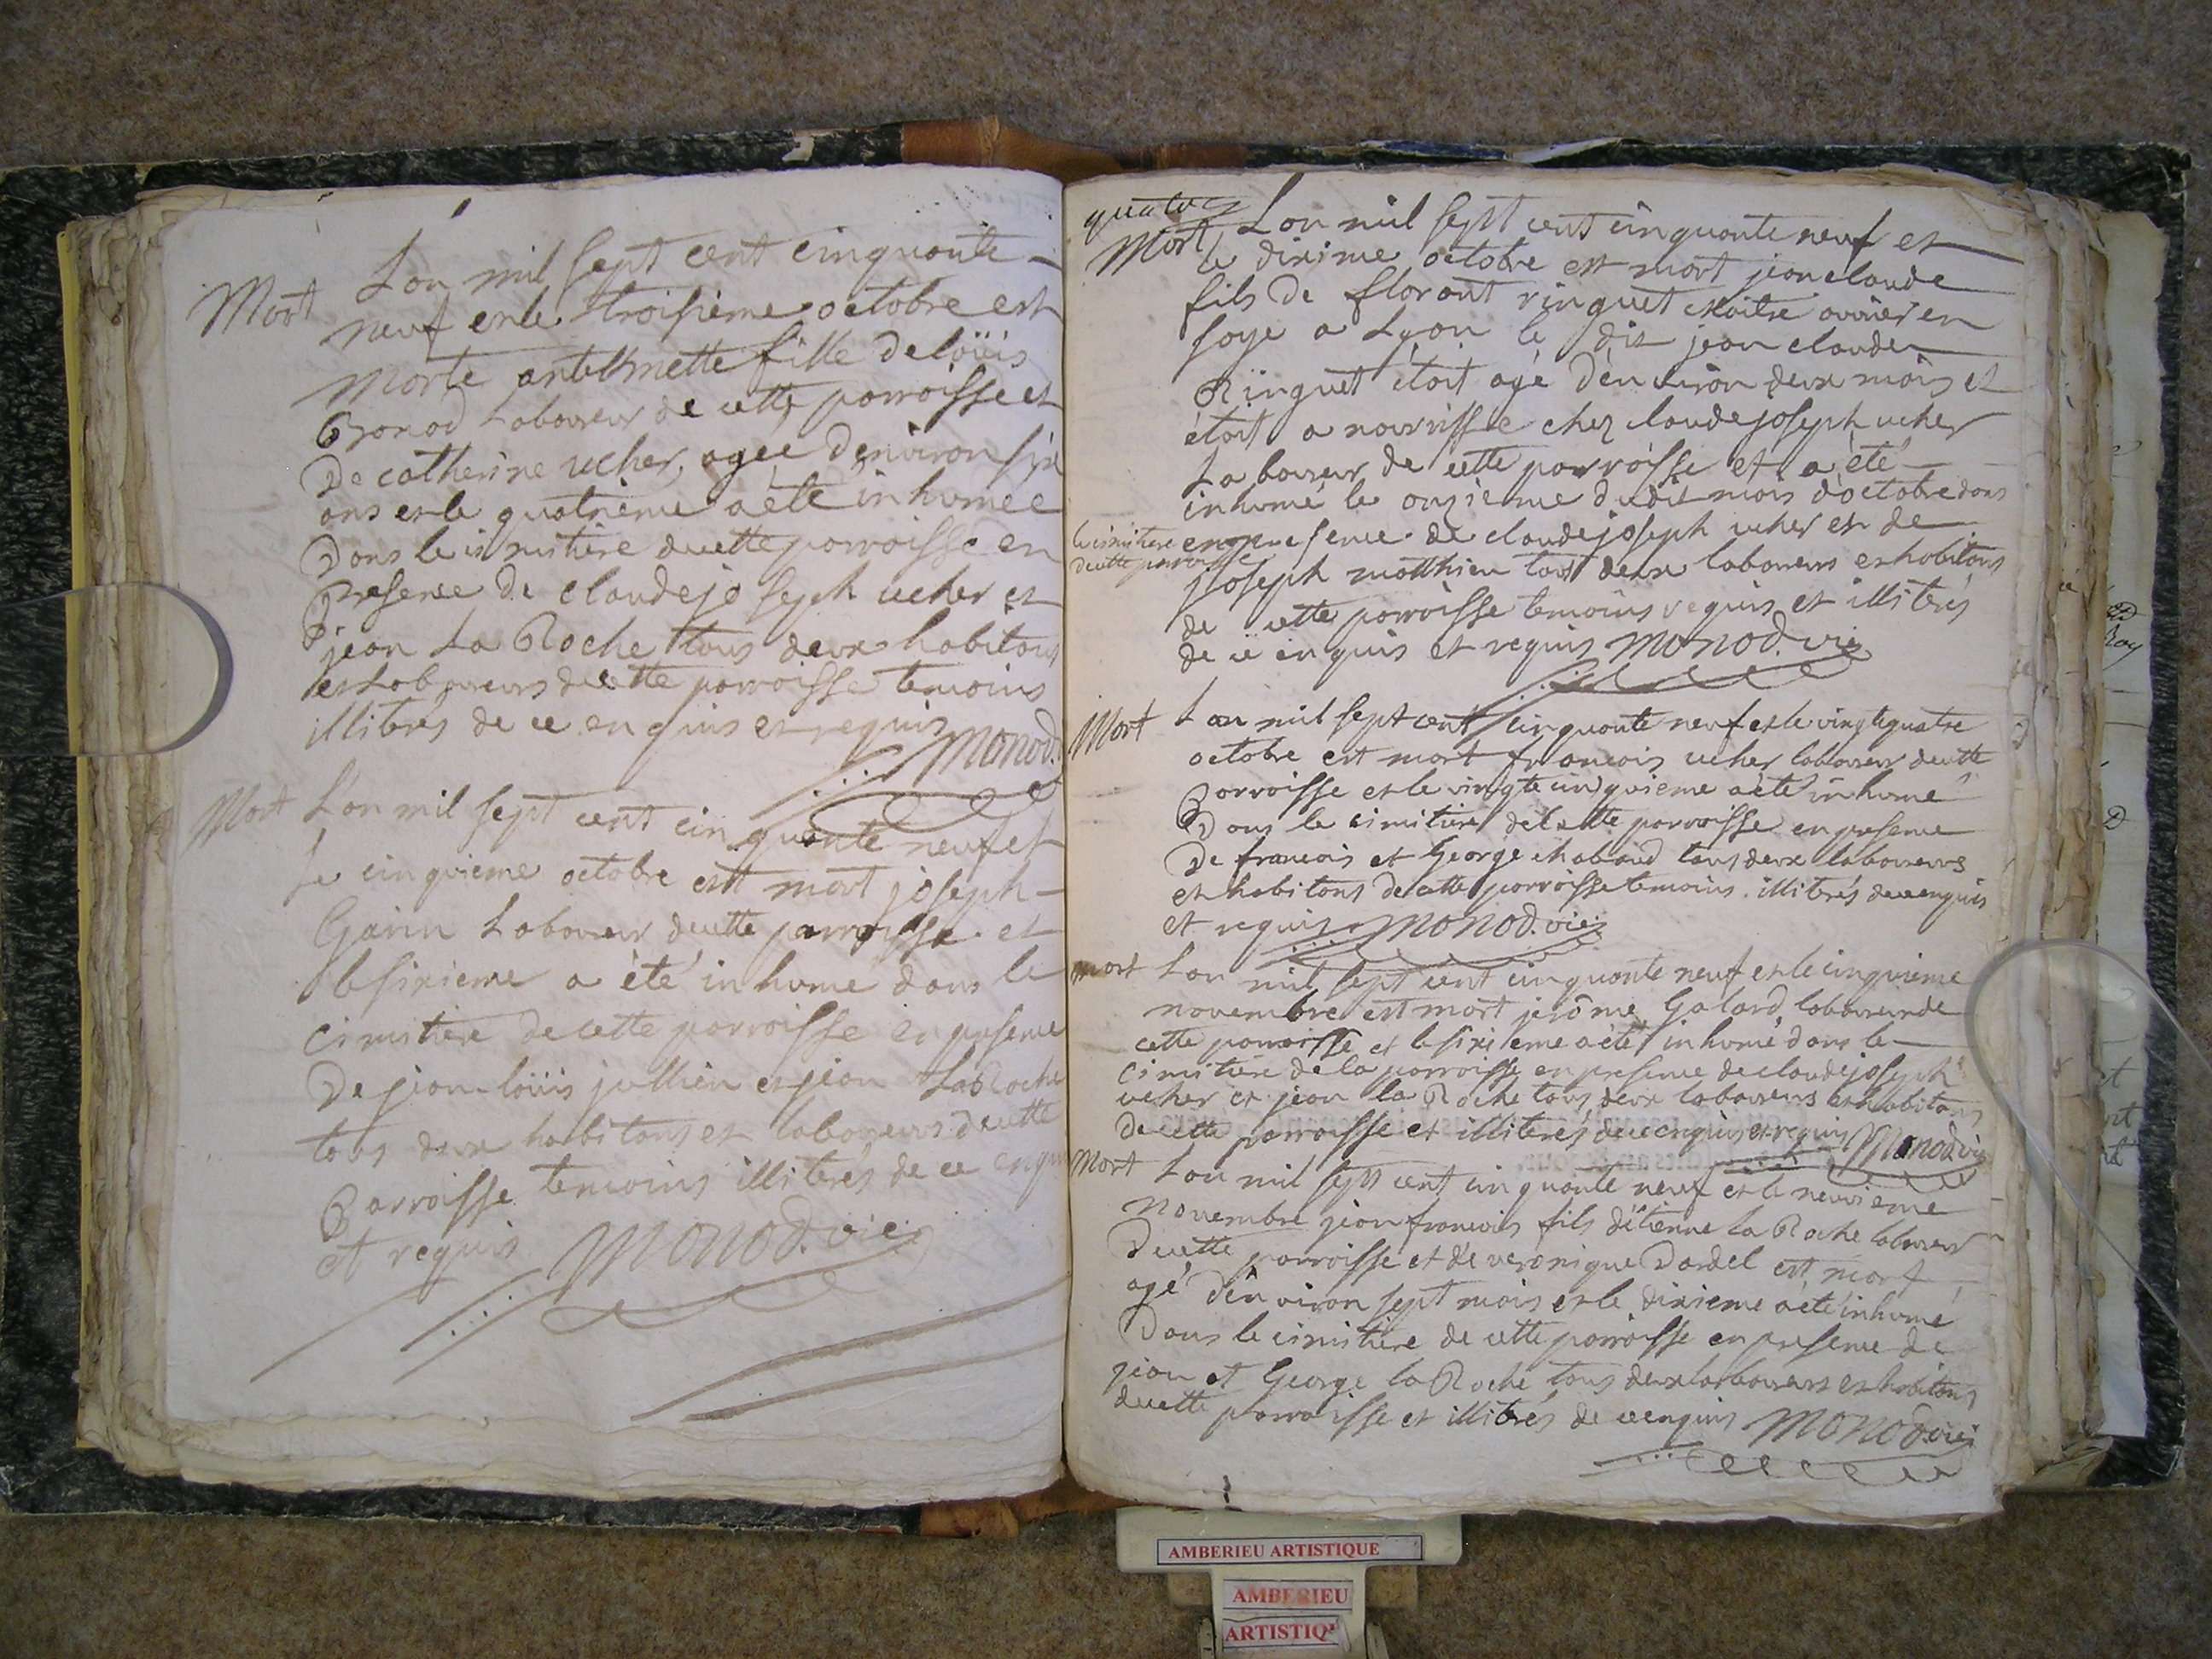 Mort
L'an mil sept cent cinquante
neuf et le troisième octobre est
morte anthelmette fille de loüis
Bonod Laboureur de cette parroisse et
De catherine ucher, agée d'environ six
ans et le quatrieme a été inhumée
Dans le cimitiere de cette parroisse en
Presence De claude joseph ucher et
jean La Roche tous deux habitans
et Laboureurs de cette parroisse temoins
illiterés de ce enquis et requis Monod.
Mort L'an mil sept cent cinquante neuf et
Le cinquieme octobre est mort joseph
Garin Laboureur de cette parroisse et
le sixieme a été inhumé dans le
cimitiere de cette parroisse en presence
De jean-loüis jullien et jean LaRoche
tous deux habitans et laboureurs de cette
Parroisse temoins illiterés de ce enquis
et requis Monod. vic
quatorz
Mort L'an mil sept cent cinquante neuf et
le dixime octobre est mort jean claude
fils De florant ringuet Maitre ouvrier en
soye a Lyon le dit jean claude
Ringuet étoit agé d'environ deux mois et
étoit a nourrisse chez claude joseph ucher
Laboureur de cette parroisse et a été
inhumé le onzieme dudit mois d'octobre dans
le cimitiere
de cette parroisse
en presence de claude joseph ucher et de
joseph matthieu tous deux laboureurs et habitans
de cette parroisse temoins requis et illiterés
de ce enquis et requis Monod. vic
Mort L'an mil sept cent cinquante neuf et le vingtquatre
octobre est mort francois ucher laboureur de cette
Parroisse et le vingte cinquieme a été inhumé
Dans le cimitiere de cette parroisse en presence
De francois et George chabaud tous deux laboureurs
et habitans de cette parroisse temoins illiterés de ce enquis
et requis Monod. vic
mort L'an mil sept cent cinquante neuf et le cinquieme
novembre est mort jerôme Galard, laboureur de
cette parroisse et le sixieme a été inhumé dans le
cimitiere de la parroisse en presence de claude joseph
ucher et jean la Roche tous deux laboureurs et habitans
De cette parroisse et illiterés de ce enquis et requis Monod. vic
Mort L'an mil sept cent cinquante neuf et le neuvieme
Novembre jean francois fils d'étienne la Roche laboureur
De cette parroisse et de veronique Dardel est mort
agé d'environ sept mois et le dixieme a été inhumé
Dans le cimitiere de cette parroisse en presence de
jean et George la Roche tous deux laboureurs et habitans
de cette parroisse et illiterés de ce enquis Monod. vic
AMBERIEU ARTISTIQUE
AMBERIEU
ARTISTIQ